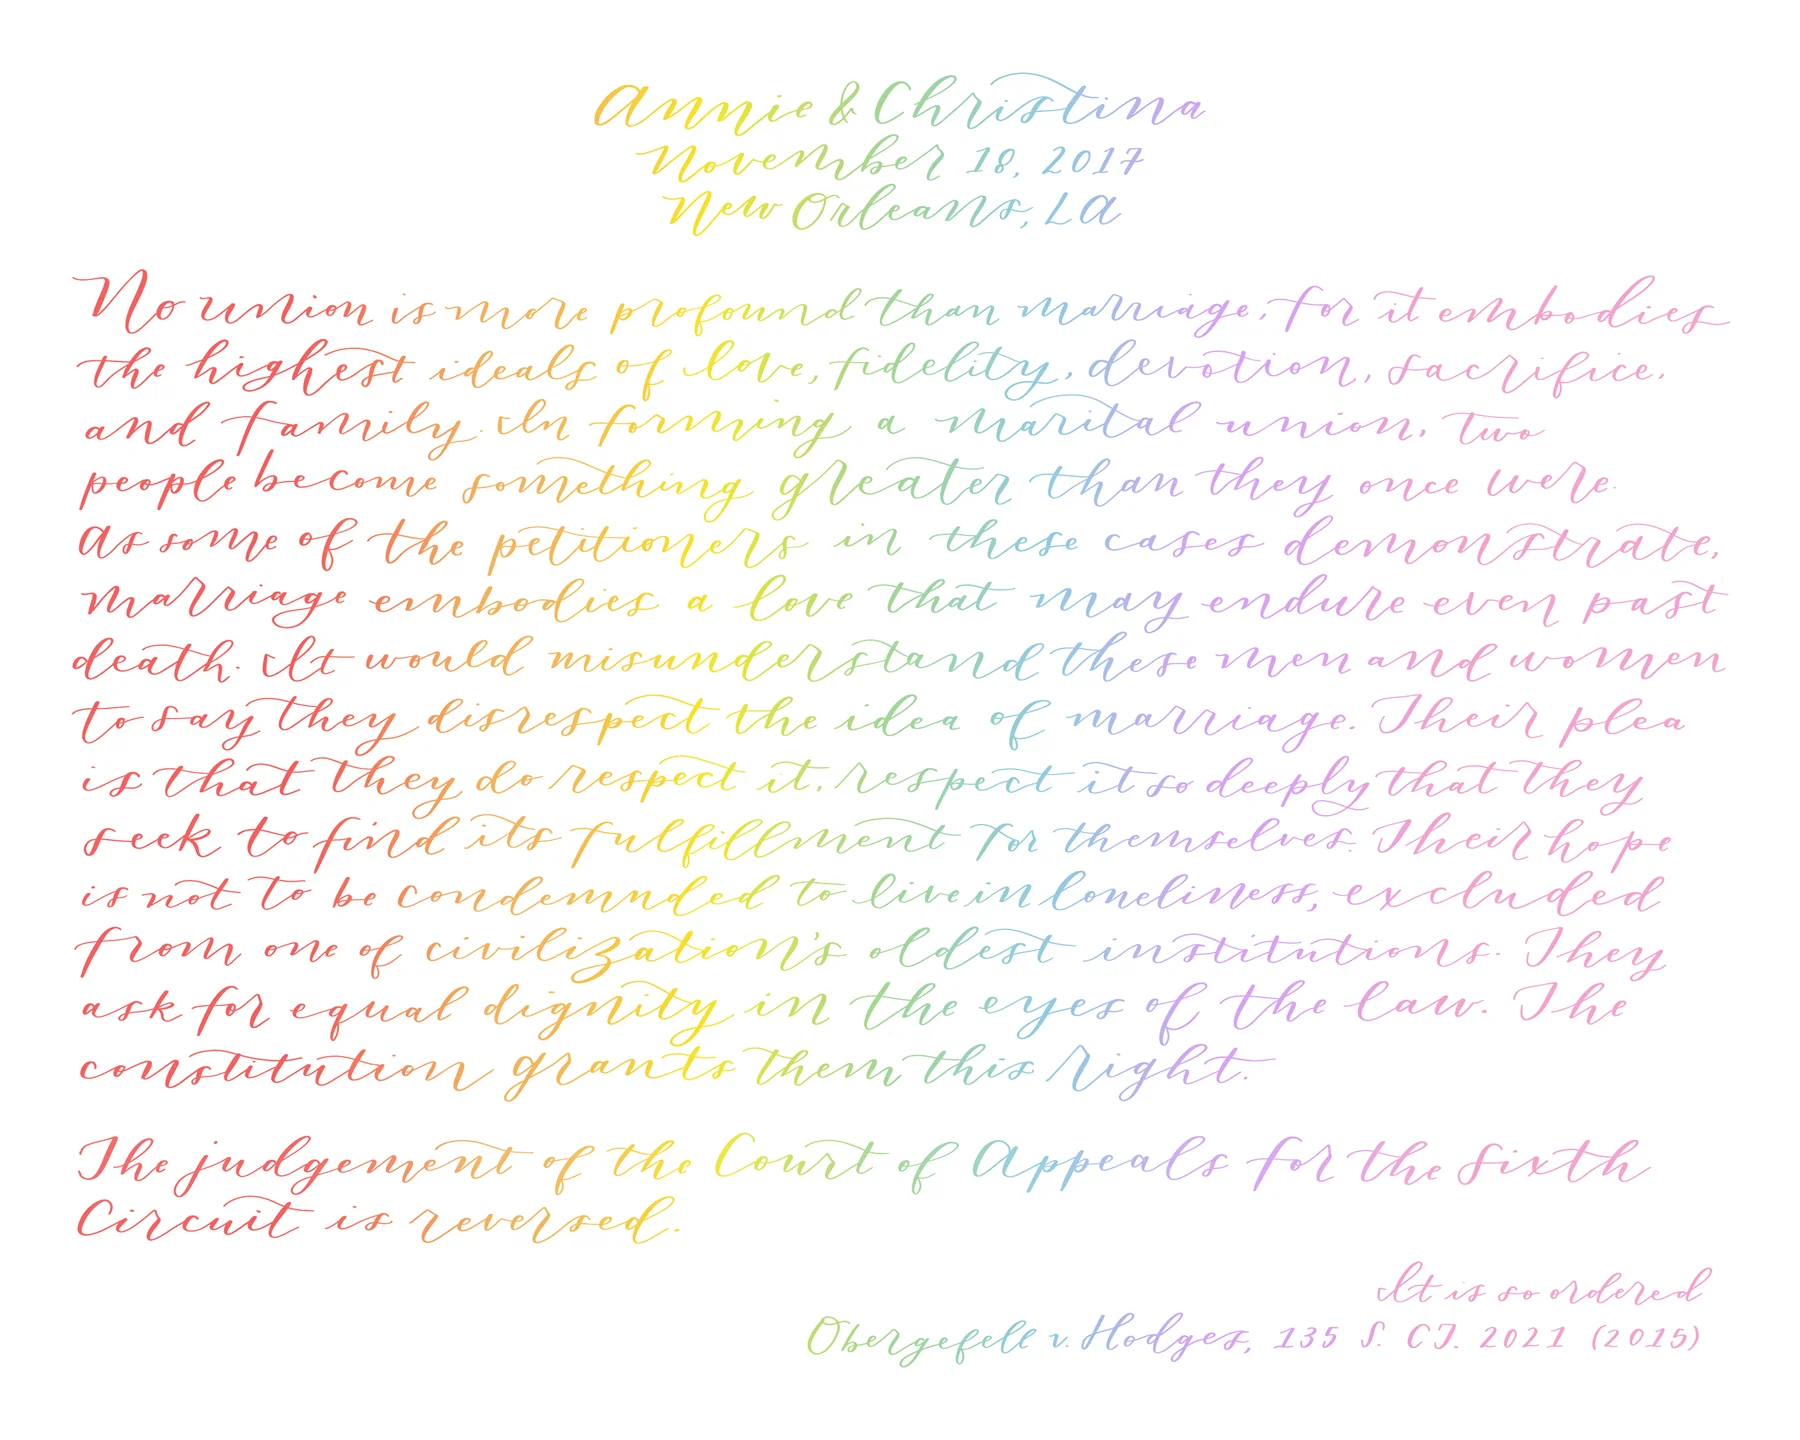 Annie & Christina
November 18, 2017
New Orleans, LA
No union is more profound than marriage, for it embodies
the highest ideals of love, fidelity, devotion, sacrifice,
and family. In forming a marital union, two
people become something greater than they once were.
As some of the petitioners in these cases demonstrate,
marriage embodies a love that may endure even past
death. It would misunderstand these men and women
to say they disrespect the idea of marriage. Their plea
is that they do respect it, respect it so deeply that they
seek to find its fulfillment for themselves. Their hope
is not to be condemnded to live in loneliness, excluded
from one of civilization's oldest institutions. They
ask for equal dignity in the eyes of the law. The
constitution grants them this right.
The judgement of the Court of Appeals for the Sixth
Circuit is reversed.
It is so ordered
Obergefell v. Hodges, 135 S. CT. 2021 (2015)